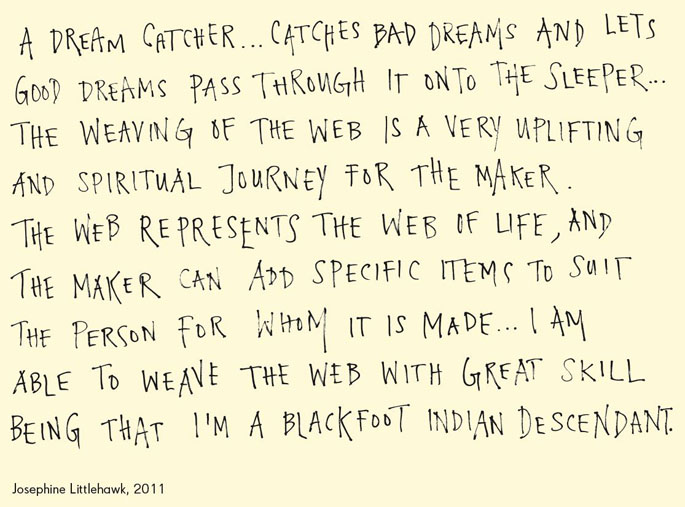 A DREAM CATCHER... CATCHES BAD DREAMS AND LETS
GOOD DREAMS PASS THROUGH IT ONTO THE SLEEPER...
THE WEAVING OF THE WEB IS A VERY UPLIFTING
AND SPIRITUAL JOURNEY FOR THE MAKER.
THE WEB REPRESENTS THE WEB OF LIFE, AND
THE MAKER CAN ADD SPECIFIC ITEMS TO SUIT
THE PERSON FOR WHOM IT IS MADE... I AM
ABLE TO WEAVE THE WEB WITH GREAT SKILL
BEING THAT I'M A BLACKFOOT INDIAN DESCENDANT.
Josephine Littlehawk, 2011